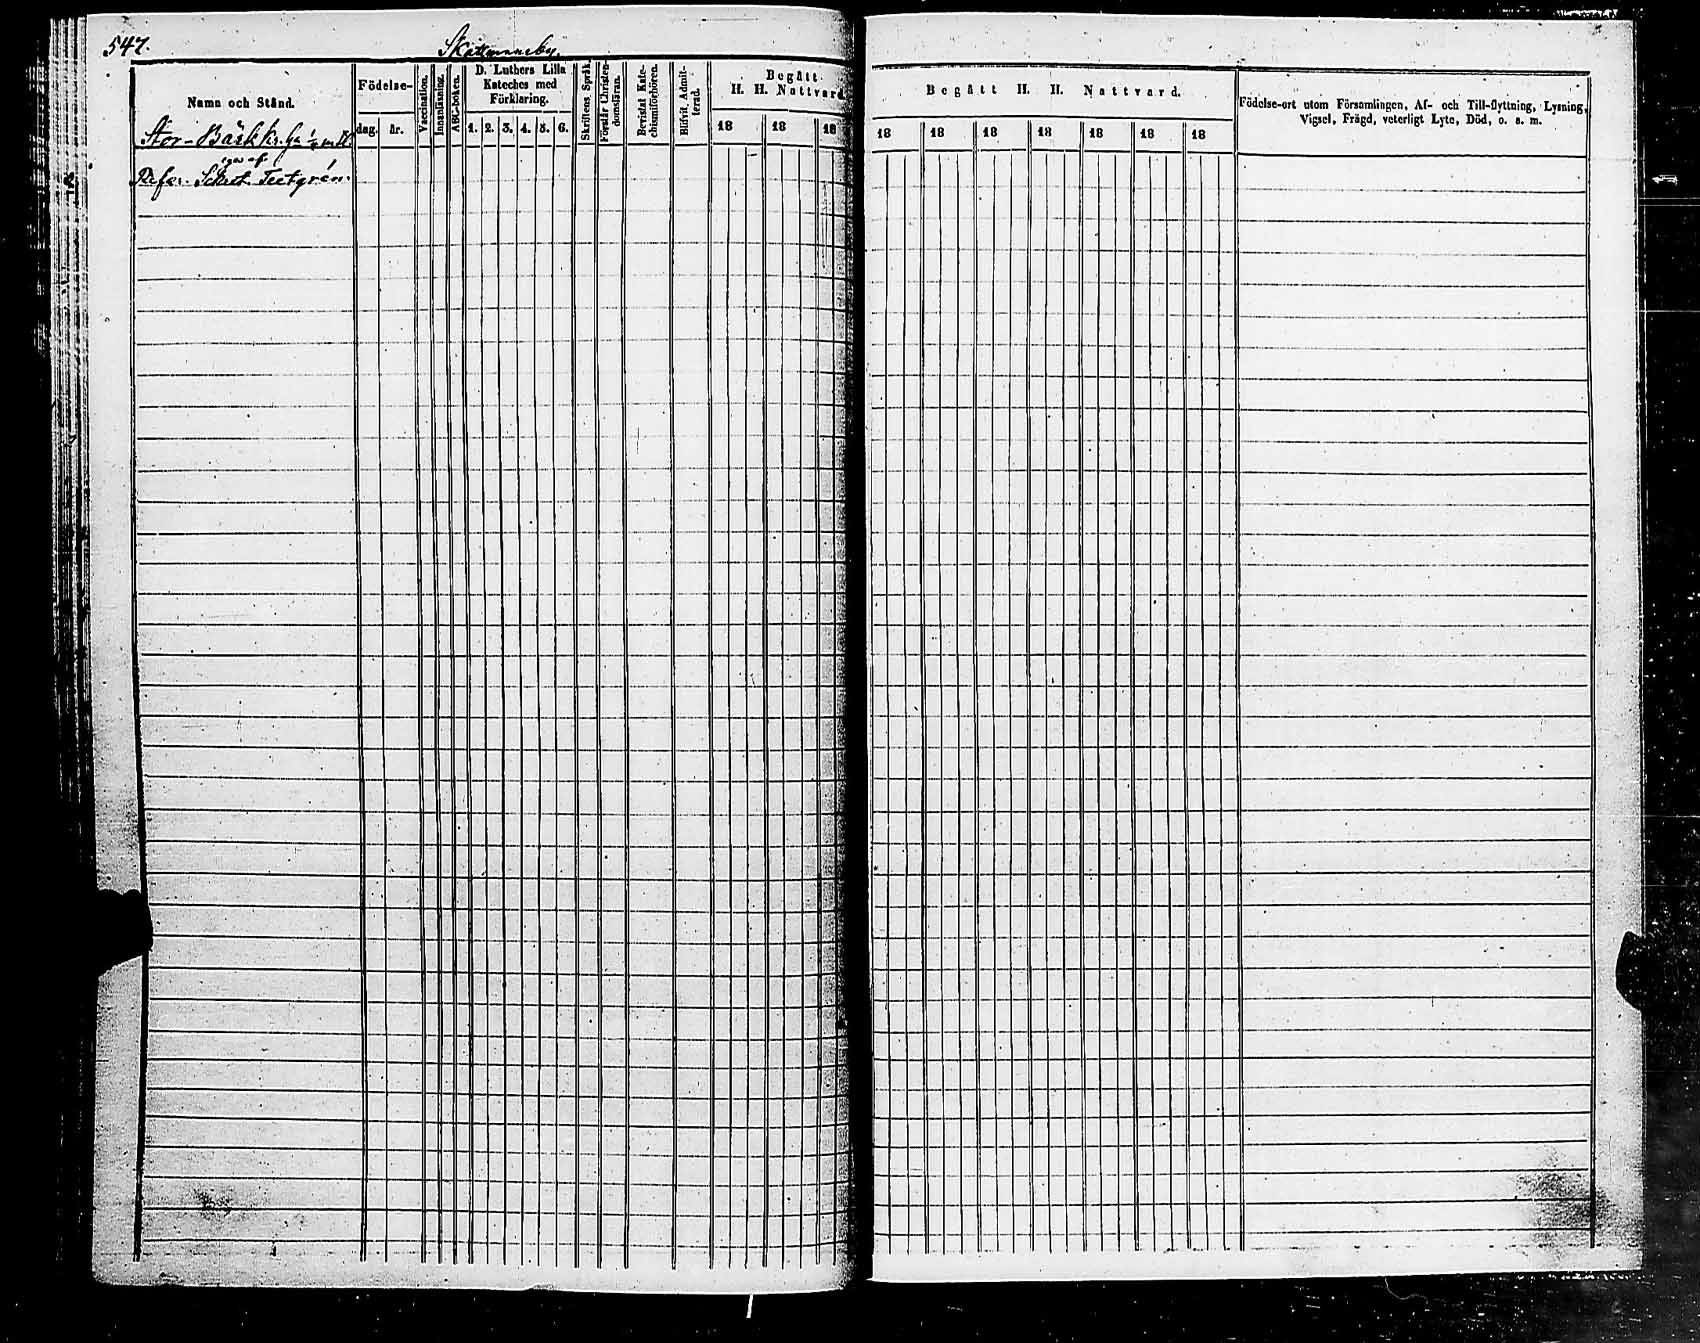 547.
Skattmansby.
Namn och Stånd.
Födelse-
dag. år.
Vaccination.
Innanläsning.
ABC-boken.
D. Luthers Lilla
Kateches med
Förklaring.
1. 2. 3. 4. 5. 6.
Skriftens Språk.
Förstår Christen-
domsläran.
Bevistat Kate-
chismiförhören.
Blifvit Admit-
terad.
Begått
H. H. Nattvard.
18 18 18
Stor-Bätk
eges af
Refer. Sekret. Teetgrén.
Begått H. H. Nattvard.
18 18 18 18 18 18 18
Födelse-ort utom Församlingen, Af- och Till-flyttning, Lysning,
Vigsel, Frägd, veterligt Lyte, Död, o. s. m.